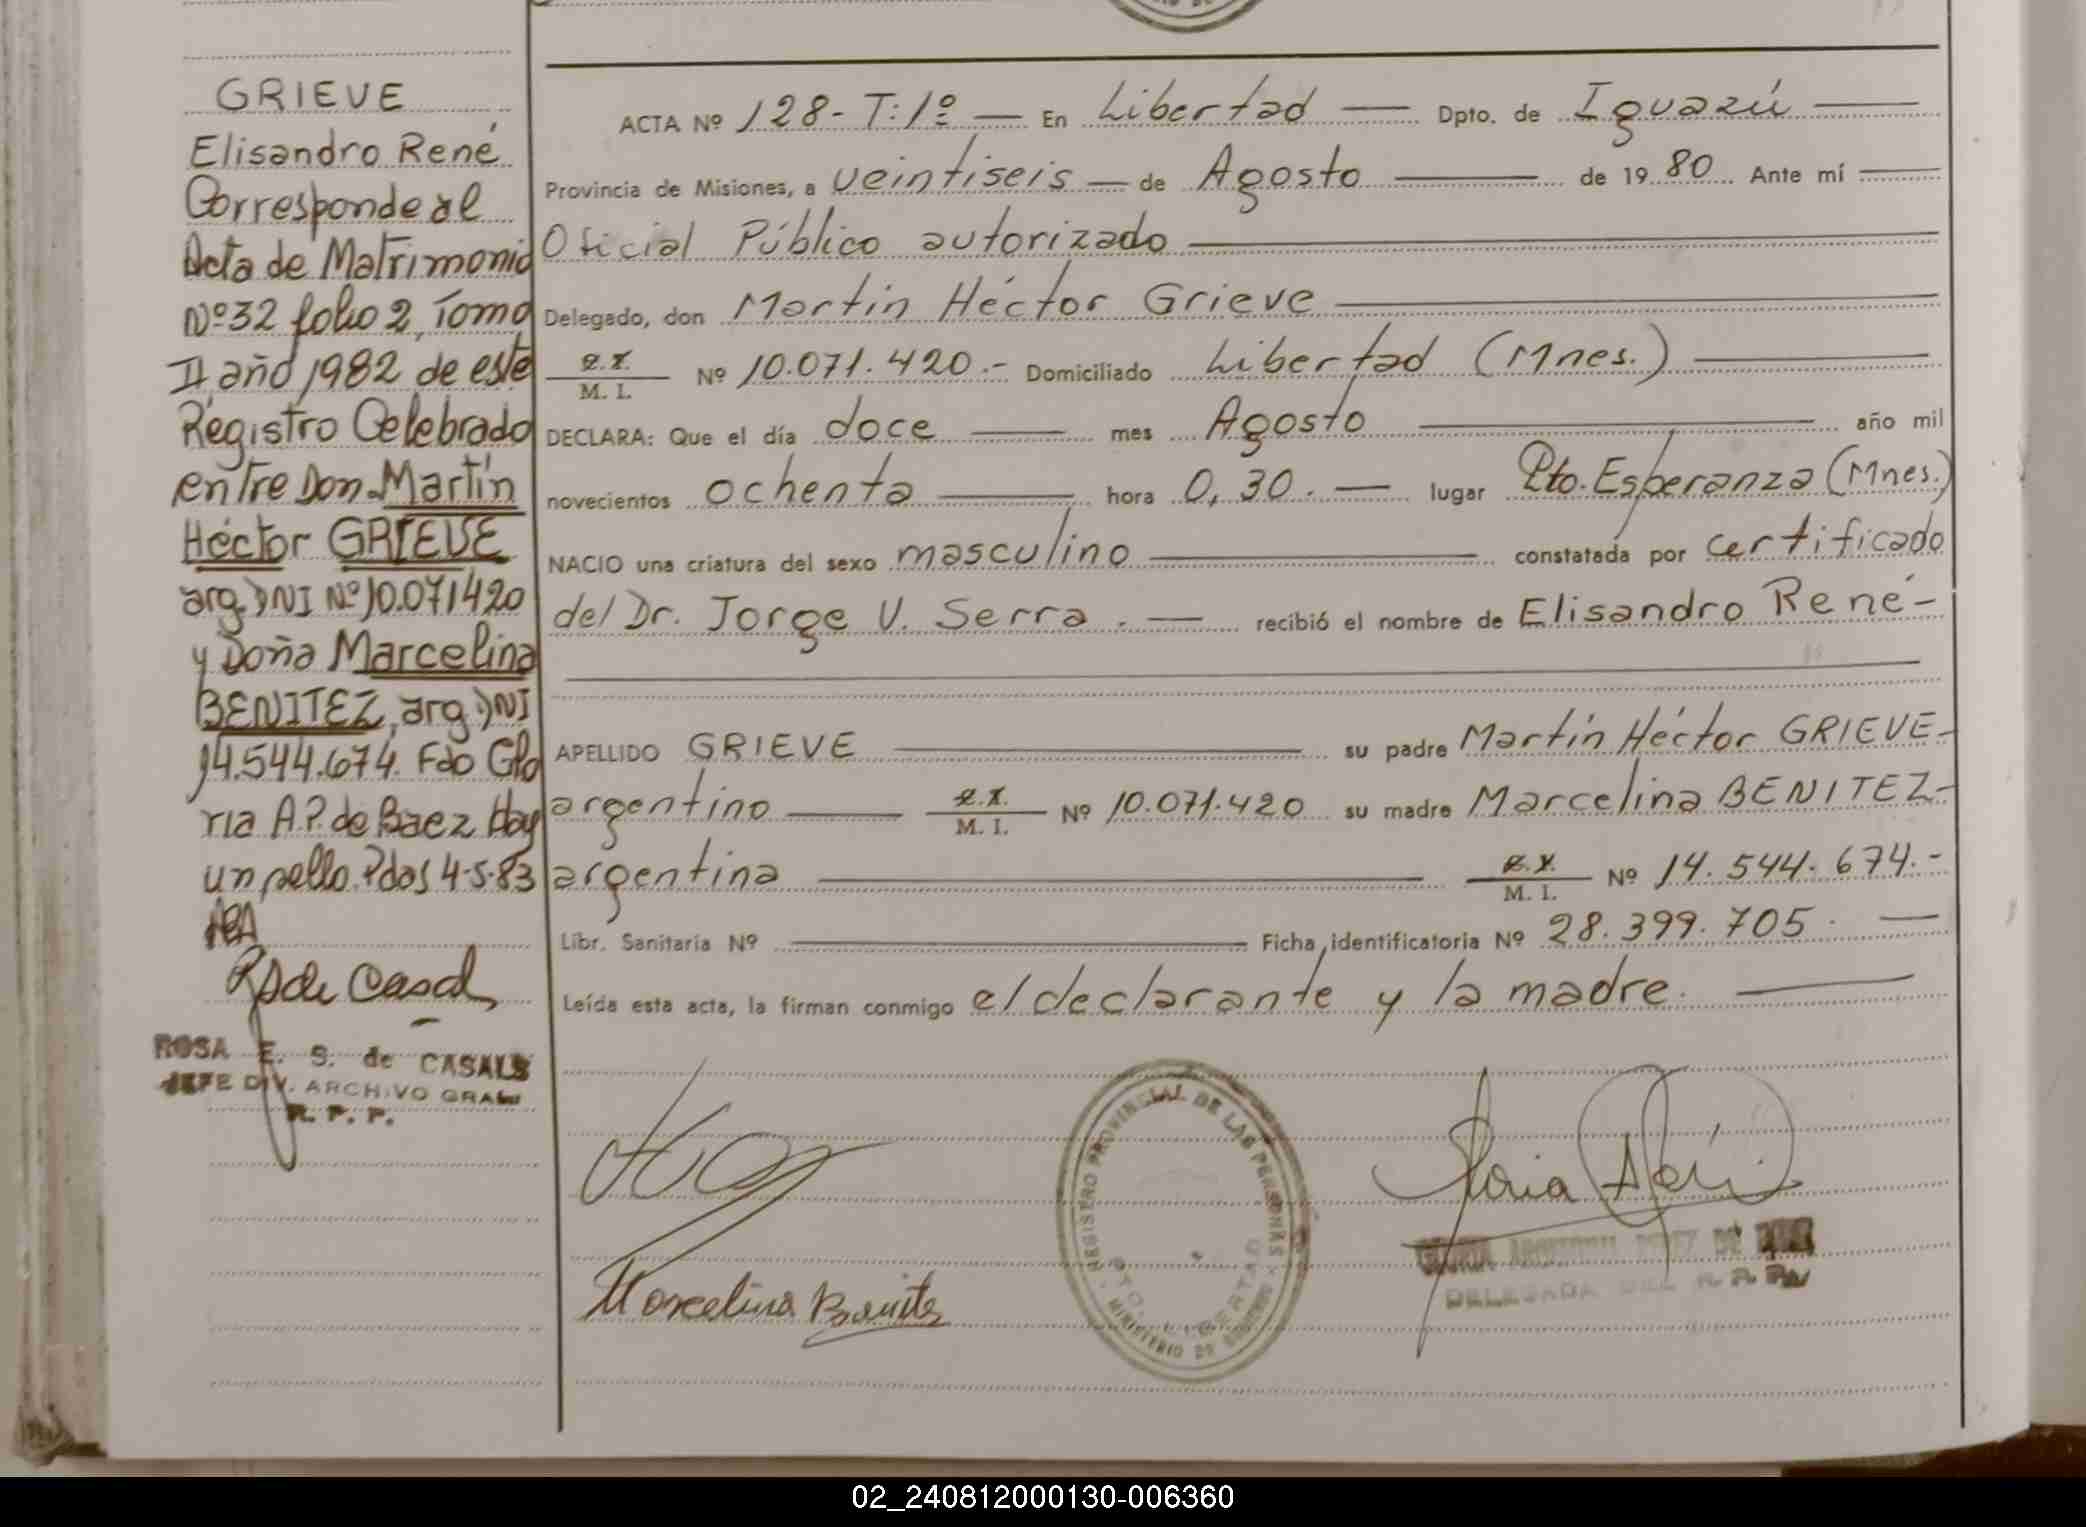 GRIEVE
Elisandro René
Corresponde al
Acta de Matrimonio
Nº 32 folio 2, Tomo
II año 1982 de este
Registro Celebrado
entre Don Martín
Héctor GRIEVE
arg. DNI Nº 10.071420
y Doña Marcelina
BENITEZ, arg. DNI
14.544.674. Fdo Glo
ria A.P. de Baez Hay
un sello. Pdas 4-5-83
ROSA E. S. de CASALS
JEFE DIV. ARCHIVO GRAL
R. P. P.
ACTA Nº 128- T: 1º — En Libertad — Dpto. de Iguazú —
Provincia de Misiones, a veintiseis — de Agosto — de 19 80 Ante mí —
Oficial Público autorizado —
Delegado, don Martín Héctor Grieve —
M. I. Nº 10.071.420.- Domiciliado Libertad (Mnes.) —
DECLARA: Que el día doce — mes Agosto — año mil
novecientos ochenta — hora 0,30. — lugar Pto. Esperanza (Mnes.)
NACIO una criatura del sexo masculino — constatada por certificado
del Dr. Jorge V. Serra. — recibió el nombre de Elisandro René-
APELLIDO GRIEVE — su padre Martín Héctor GRIEVE-
argentino — M. I. Nº 10.071.420 su madre Marcelina BENITEZ-
argentina — M. I. Nº 14.544.674.-
Libr. Sanitaria Nº — Ficha identificatoria Nº 28.399.705. —
Leída esta acta, la firman conmigo el declarante y la madre. —
REGISTRO PROVINCIAL DE LAS PERSONAS
MINISTERIO DE GOBIERNO
PTO. LIBERTAD
Marcelina Benitez
DELEGADA DEL R. P. P.
02_240812000130-006360